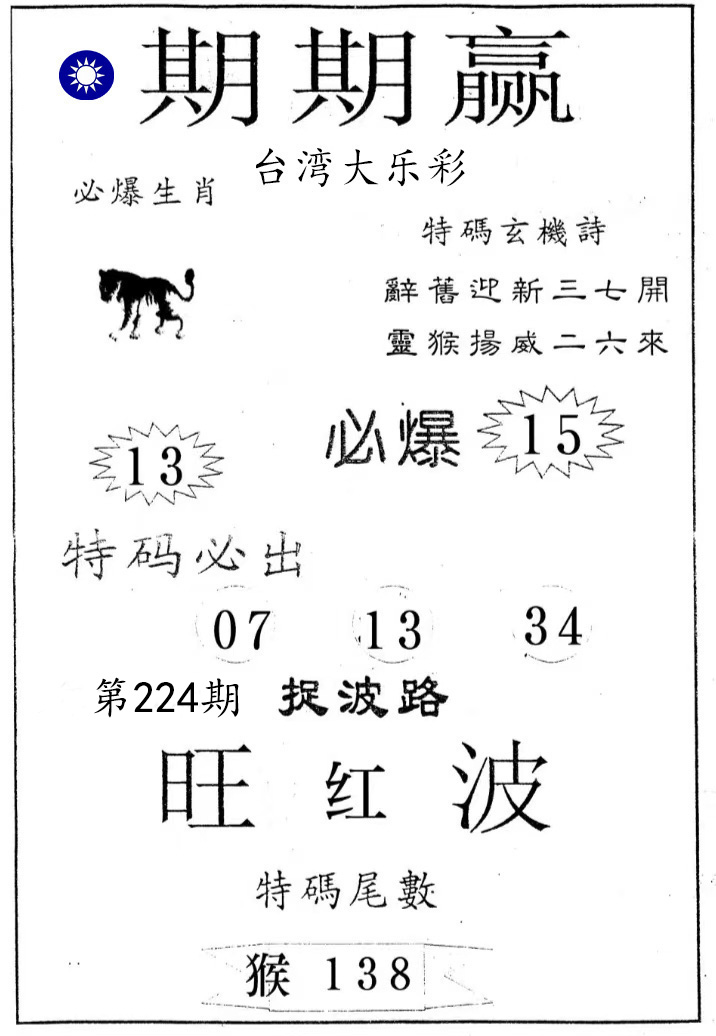 期期赢
台湾大乐彩
必爆生肖
特碼玄機詩
辭舊迎新三七開
靈猴揚威二六來
必爆 15
13
特码必出
07 13 34
第224期 捉波路
旺红波
特碼尾數
猴 138